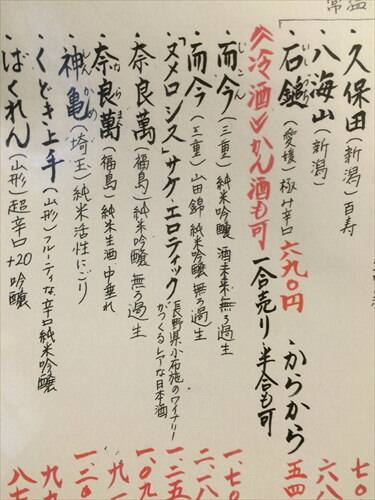 常温
・久保田(新潟)百寿 七〇
・八海山(新潟) 六八
・石鎚(愛媛)極み辛口 六九〇円 からから 五四
いしづち
≪冷酒≫かん酒も可 一合売り 半合も可
・而今(三重)純米吟醸 酒未来無ろ過生 一、七〇
じこん
・而今(三重)山田錦 純米吟醸 無ろ過生 二、八
「ヌメロシス」サケ・エロティック 長野県小布施のワイナリーがつくるレアな日本酒 一、二五
・奈良萬(福島)純米吟醸 無ろ過生 一、〇九
・奈良萬(福島)純米生酒 中垂れ 九一
ならまん
・神亀(埼玉)純米活性にごり 一、二〇
しんかめ
・くどき上手(山形)フルーティな辛口純米吟醸 九九
・ばくれん(山形)超辛口+20 吟醸 八七